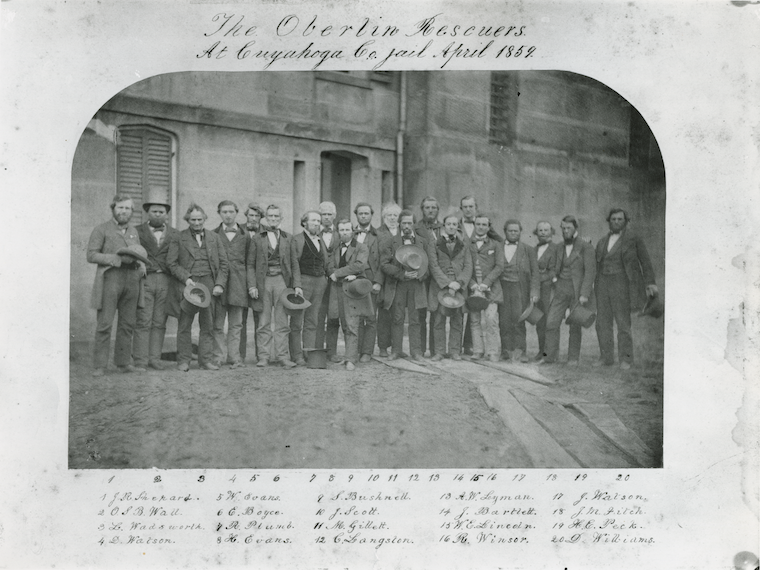 The Oberlin Rescuers
At Cuyahoga Co. jail April 1859.
1 2 3 4 5 6 7 8 9 10 11 12 13 14 15 16 17 18 19 20
1 J. R. Shepard. 5 W. Evans. 9 S. Bushnell. 13 A. W. Lyman. 17 J. Watson.
2 O. S. B. Wall. 6 E. Boyce. 10 J. Scott. 14 J. Bartlett. 18 J. M. Fitch.
3 L. Wadsworth. 7 R. Plumb. 11 M. Gillett. 15 W. E. Lincoln. 19 H. E. Peck.
4 D. Watson. 8 H. Evans. 12 C. Langston. 16 R. Winsor. 20 D. Williams.